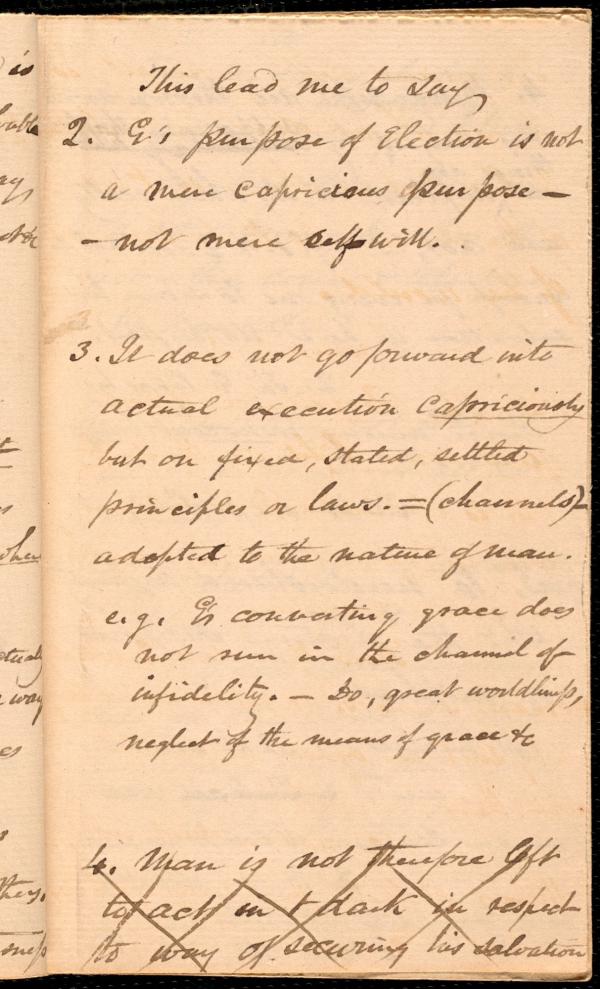 is
This lead me to say
2. G's purpose of Election is not
a mere capricious purpose —
– not mere self will.
3. It does not go forward into
actual execution capriciously
but on fixed, stated, settled
principles or laws. = (channels) –
adapted to the nature of man.
e.g. G's converting grace does
not run in the channel of
infidelity. – Do, great worldliness,
neglect of the means of grace &c
4. Man is not therefore left
to act in t dark in respect
to way of securing his salvation